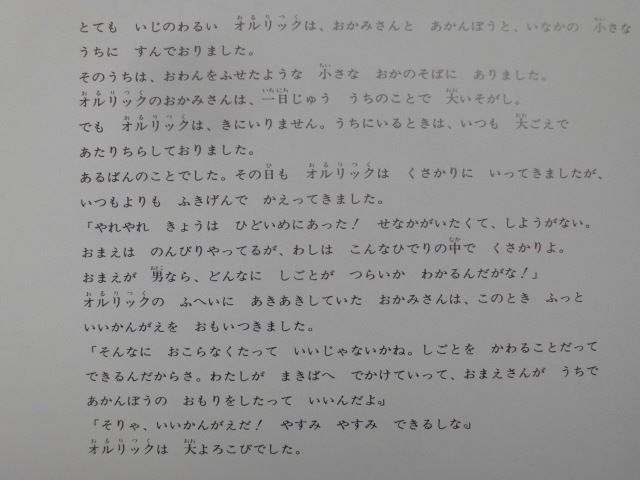 とても　いじのわるい　オルリックは、おかみさんと　あかんぼうと、いなかの　小さな
うちに　すんでおりました。
そのうちは、おわんをふせたような　小さな　おかのそばに　ありました。
オルリックのおかみさんは、一日じゅう　うちのことで　大いそがし。
でも　オルリックは、きにいりません。うちにいるときは、いつも　大ごえで
あたりちらしておりました。
あるばんのことでした。その日も　オルリックは　くさかりに　いってきましたが、
いつもよりも　ふきげんで　かえってきました。
「やれやれ　きょうは　ひどいめにあった！　せなかがいたくて、しようがない。
おまえは　のんびりやってるが、わしは　こんなひでりの中で　くさかりよ。
おまえが　男なら、どんなに　しごとが　つらいか　わかるんだがな！」
オルリックの　ふへいに　あきあきしていた　おかみさんは、このとき　ふっと
いいかんがえを　おもいつきました。
「そんなに　おこらなくたって　いいじゃないかね。しごとを　かわることだって
できるんだからさ。わたしが　まきばへ　でかけていって、おまえさんが　うちで
あかんぼうの　おもりをしたって　いいんだよ。」
「そりゃ、いいかんがえだ！　やすみ　やすみ　できるしな。」
オルリックは　大よろこびでした。